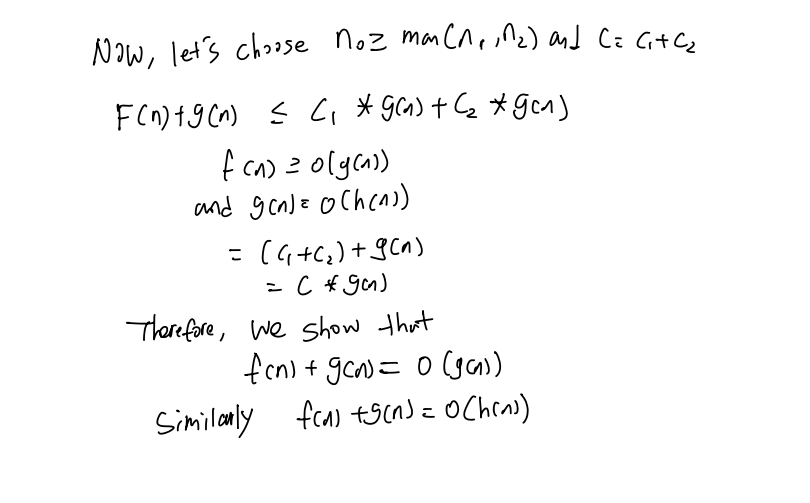 Now, let's choose n₀ = max(n₁, n₂) and C = C₁+C₂
F(n)+g(n) ≤ C₁ * g(n) + C₂ * g(n)
f(n) = O(g(n))
and g(n) = O(h(n))
= (C₁+C₂) + g(n)
= C * g(n)
Therefore, we show that
f(n) + g(n) = O(g(n))
Similarly f(n) + g(n) = O(h(n))